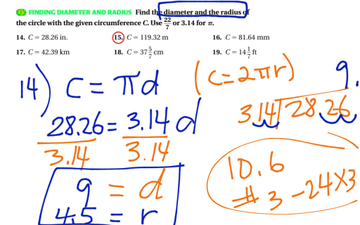 11 FINDING DIAMETER AND RADIUS Find the diameter and the radius of
the circle with the given circumference C. Use 22/7 or 3.14 for π.
14. C = 28.26 in. 15. C = 119.32 m 16. C = 81.64 mm
17. C = 42.39 km 18. C = 37 5/7 cm 19. C = 14 1/7 ft
14) C = πd (C = 2πr) 9.
28.26 = 3.14 d 3.14 28.26
3.14 3.14
9 = d
4.5 = r
10.6
# 3-24x3